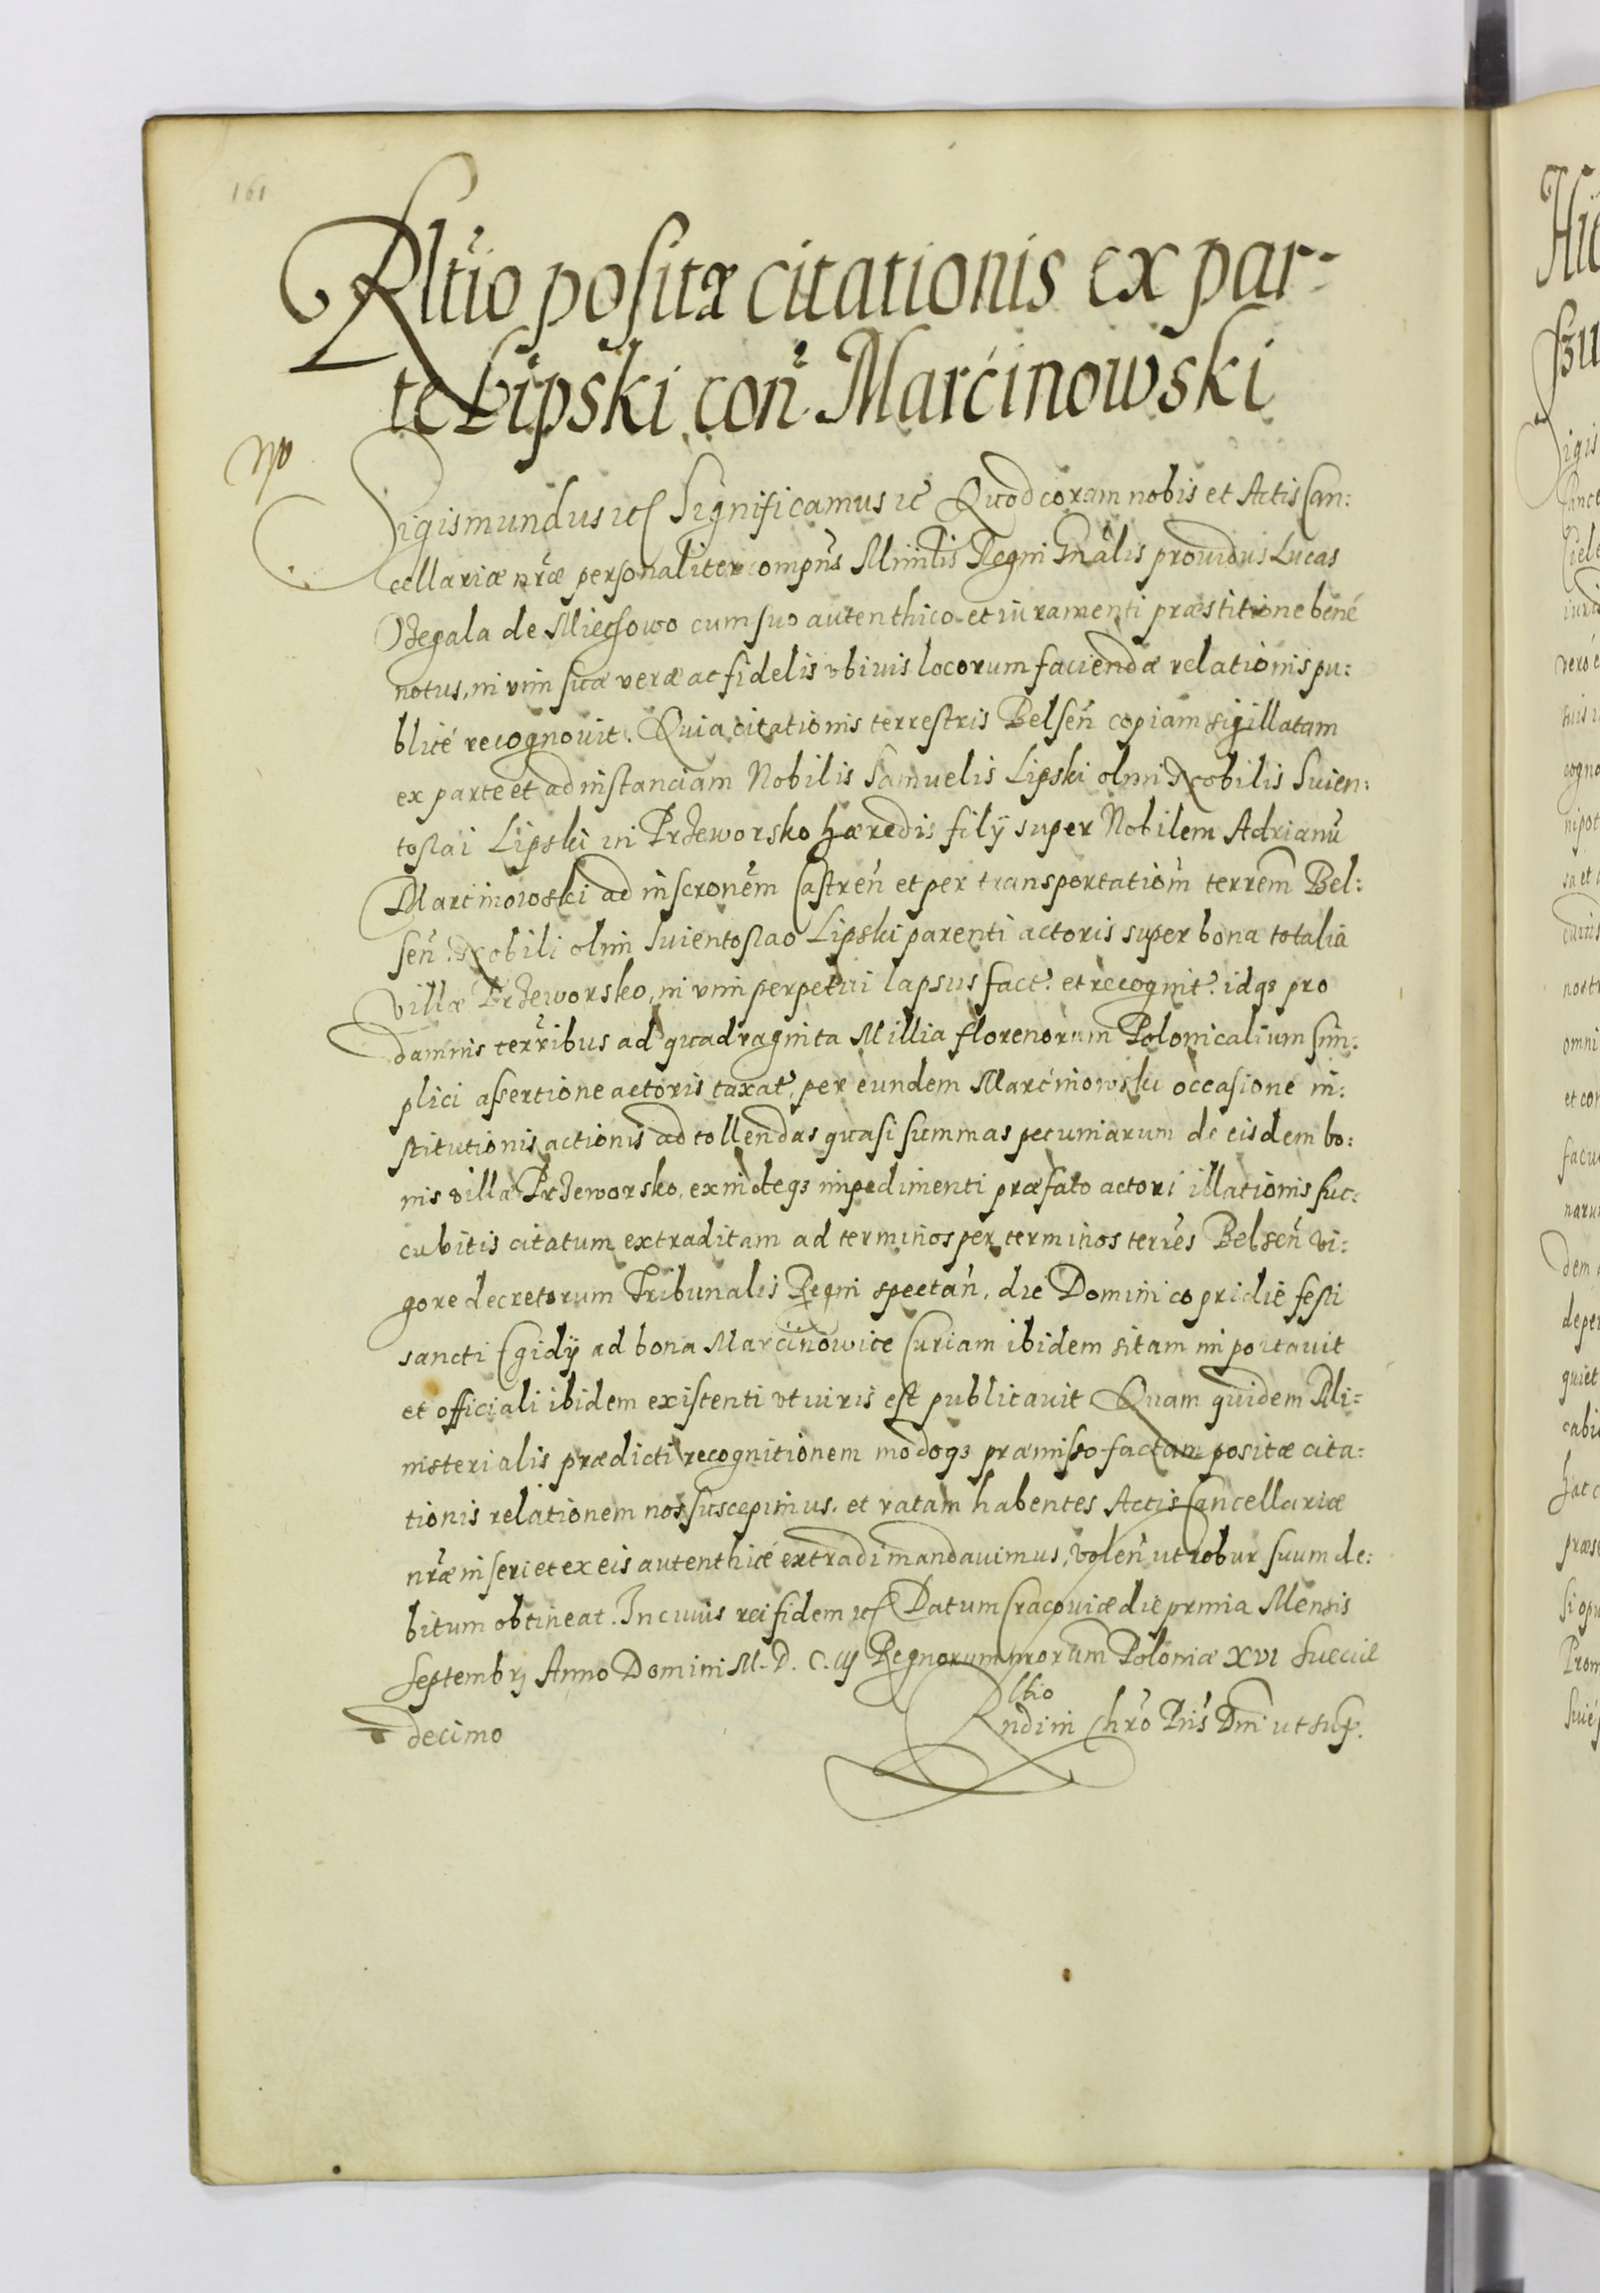 161
Rltio positæ citationis ex par-
te Lipski con Marcinowski
Sigismundus etc Significamus etc Quod coram nobis et Actis Can:
cellariæ nræ personaliter compns Minrlis Regni Gnalis prouidus Lucas
de cum suo autenthico et iuramenti præstitione bené
notus, in vim suæ veræ ac fidelis vbiuis locorum faciendæ relationis pu:
blicé recognouit. Quia citationis terrestris Belsen copiam sigillatam
ex parte et ad instanciam Nobilis Samuelis Lipski olim Nobilis Suien:
toslai Lipski in Przeworsko hæredis filij super Nobilem Adrianu
Marcinowski ad inscronem Castren et per transportation terrem Bel:
sen Nobili olim Suientoslao Lipski parenti actoris super bona totalia
villæ Przeworsko, in vim perpetui lapsus fact et recognit idqз pro
damnis terribus ad quadraginta Millia florenorum Polonicalium sim:
plici assertione actoris taxat per eundem Marcinowski occasione in:
stitutionis actionis ad tollendas quasi summas pecuniarum de eisdem bo:
nis villa Przeworsko, exindeqз impedimenti præfato actori illationis suc:
cubitis citatum extraditam ad terminos per terminos terres Belsen vi:
gore decretorum Tribunalis Regni spectan, die Dominico pridie festi
sancti Egidij ad bona Marcinowice Curiam ibidem sitam importauit
et officiali ibidem existenti vt iuris est publicauit Quam quidem Mi=
nisterialis prædicti recognitionem modoqз præmisso factam positæ cita:
tionis relationem nos suscepimus. et ratam habentes Actis Cancellariæ
nræ inseri et ex eis autenthicé extradi mandauimus, volen ut robur suum de:
bitum obtineat. In cuius rei fidem etc Datum Cracouiæ die prima Mensis
Septembrj Anno Domini M. D. C. iij Regnorum nrorum Poloniæ XVI Sueciæ
decimo
Rltio
Rndi in Chro Pris Dni ut sup.